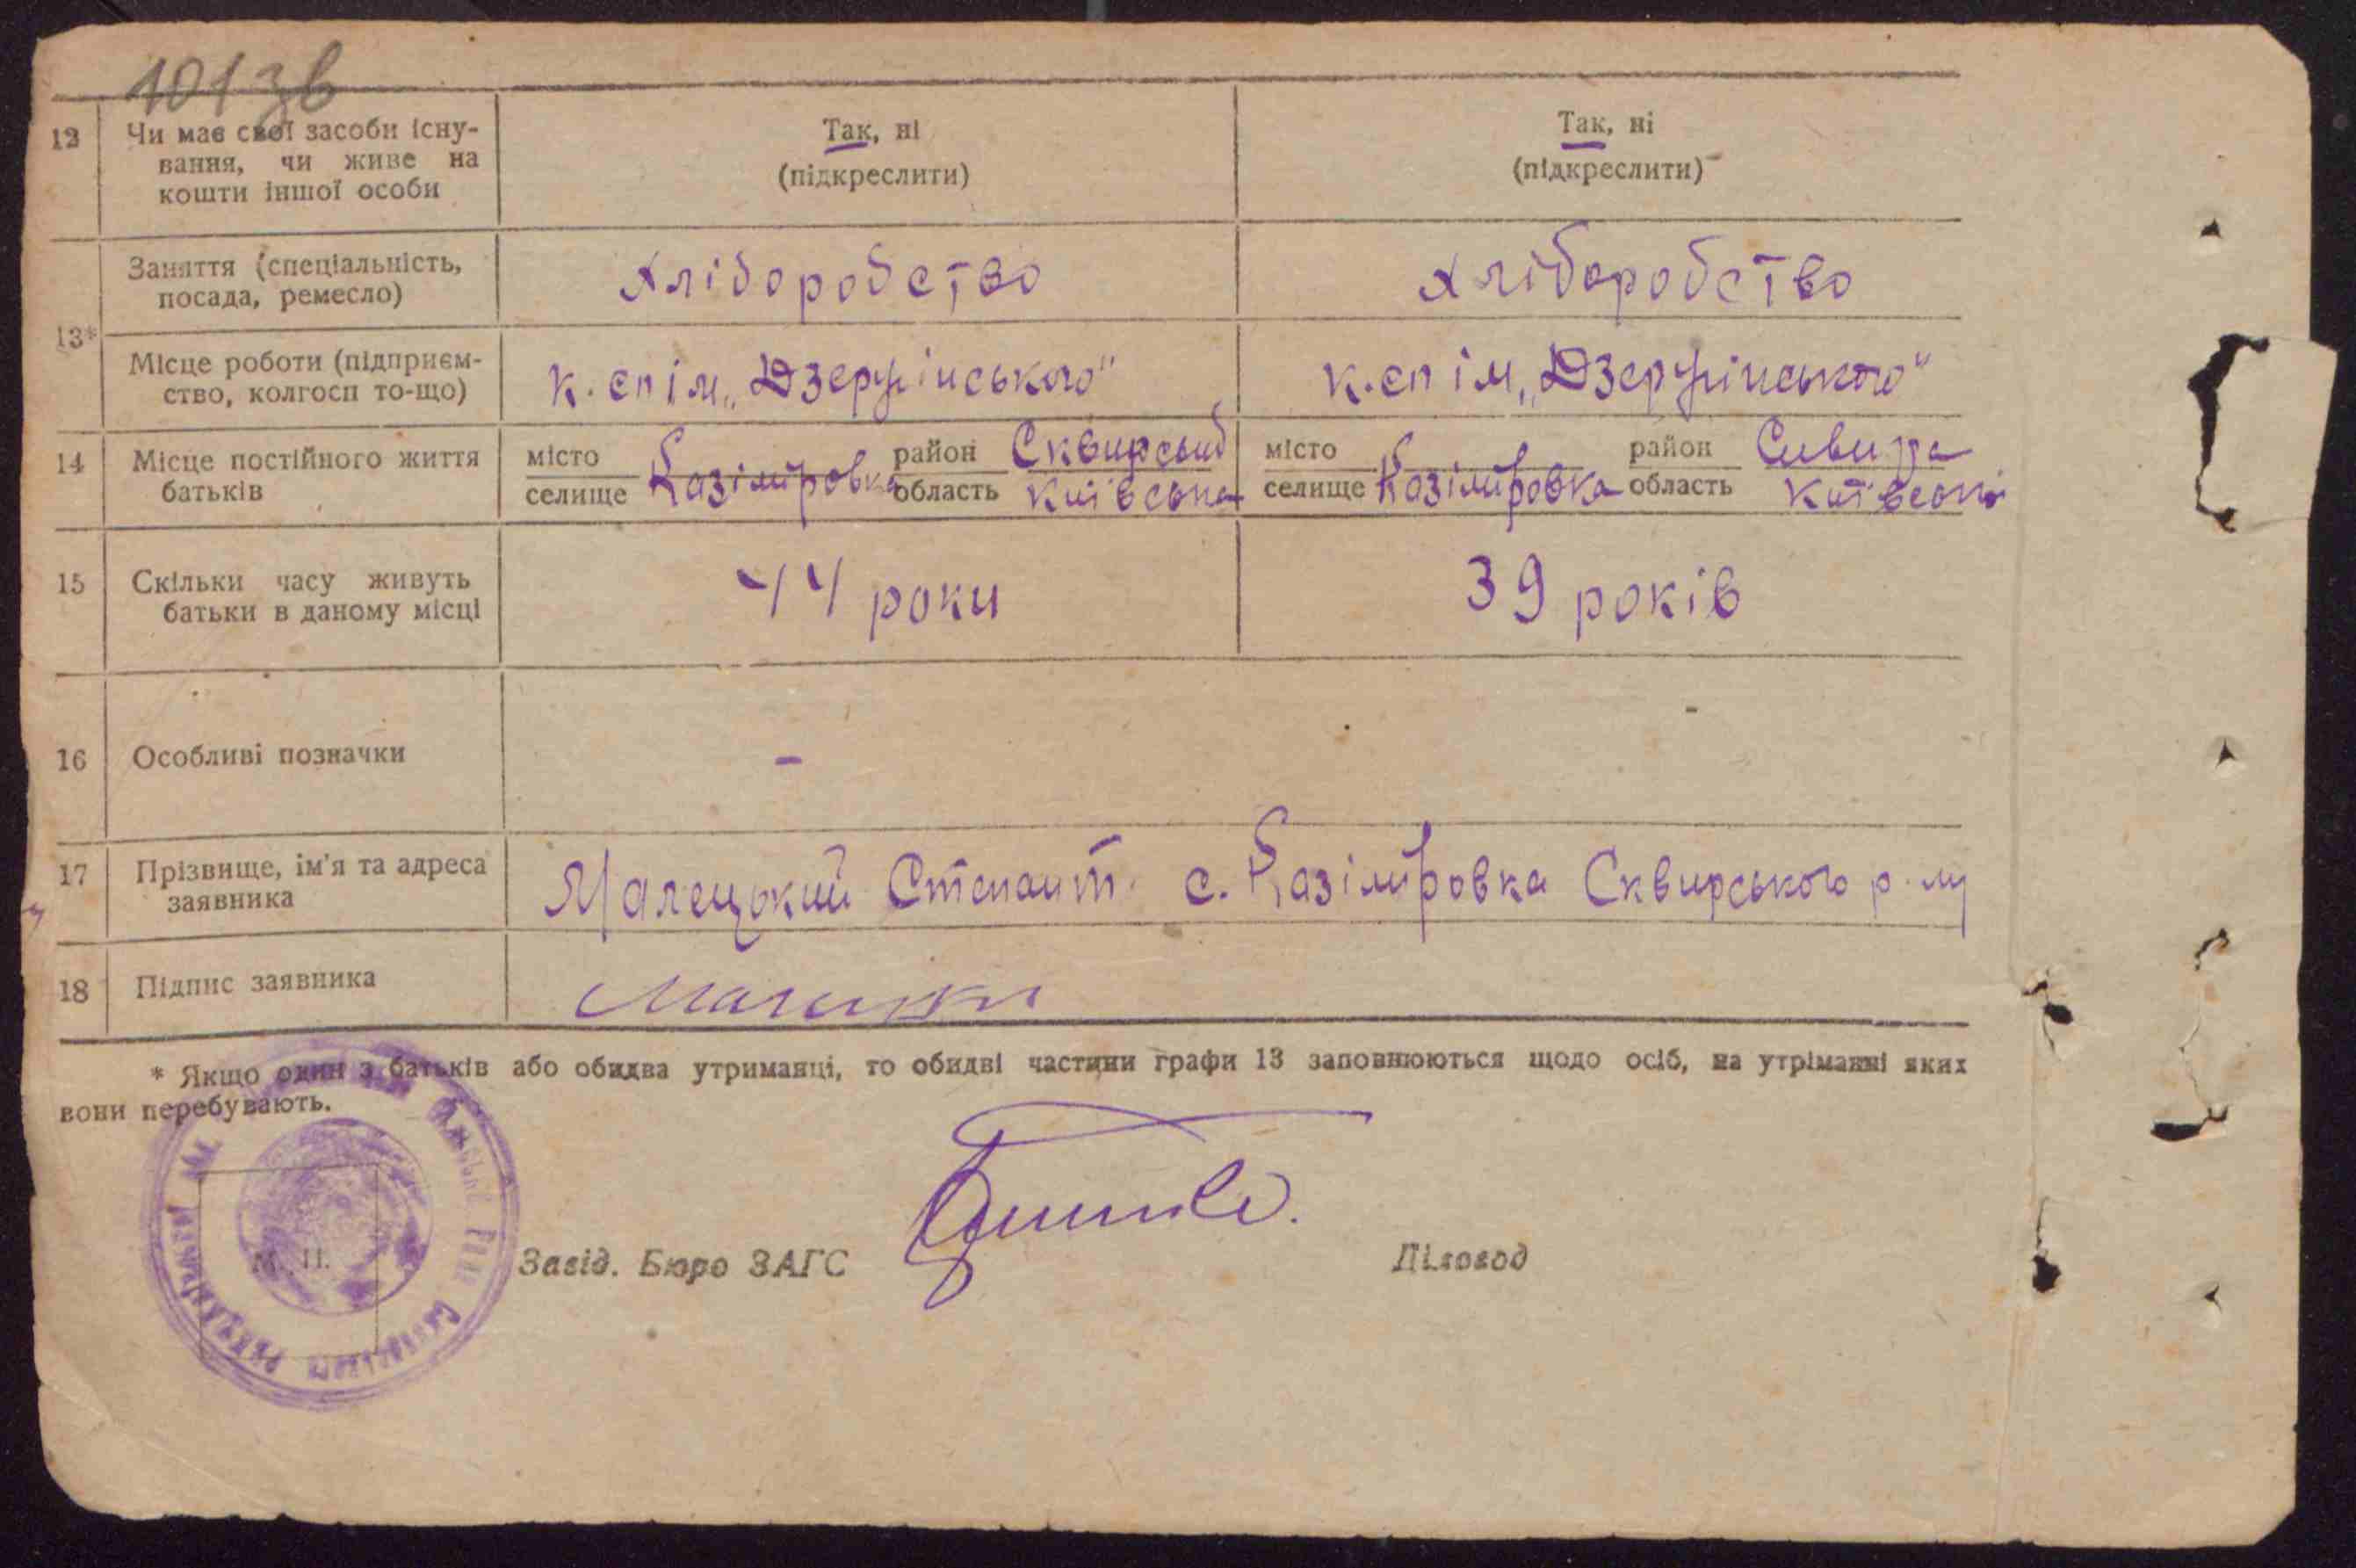 101 зв
12 Чи має свої засоби існу- Так, ні Так, ні
вання, чи живе на (підкреслити) (підкреслити)
кошти іншої особи
13* Заняття (спеціальність, хліборобство хліборобство
посада, ремесло)
Місце роботи (підприєм- к. сп ім. „Дзержінського" к. сп ім. „Дзержінського"
ство, колгосп то-що)
14 Місце постійного життя місто район Сквирський місто район Сквира
батьків селище Казімировка область Київська селище Казімировка область Київська
15 Скільки часу живуть 44 роки 39 років
батьки в даному місці
16 Особливі позначки - -
17 Прізвище, ім'я та адреса Малецький с. Казімировка Сквирського р.
заявника
18 Підпис заявника
* Якщо один з батьків або обидва утриманці, то обидві частини графи 13 заповнюються щодо осіб, на утріманні яких
вони перебувають.
М. П.
Завід. Бюро ЗАГС Діловод